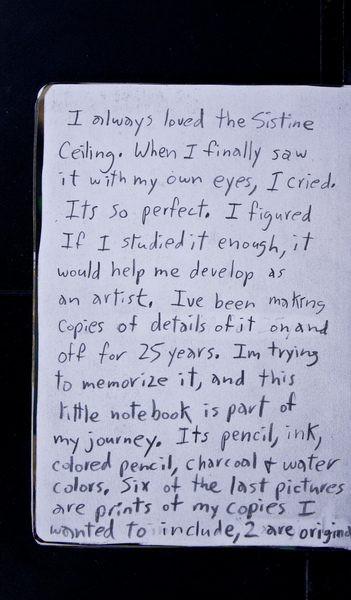 I always loved the Sistine
Ceiling. When I finally saw
it with my own eyes, I cried.
Its so perfect. I figured
If I studied it enough, it
would help me develop as
an artist. Ive been making
copies of details of it on and
off for 25 years. Im trying
to memorize it, and this
little notebook is part of
my journey. Its pencil, ink,
colored pencil, charcoal & water
colors. Six of the last pictures
are prints of my copies I
wanted to include, 2 are origina